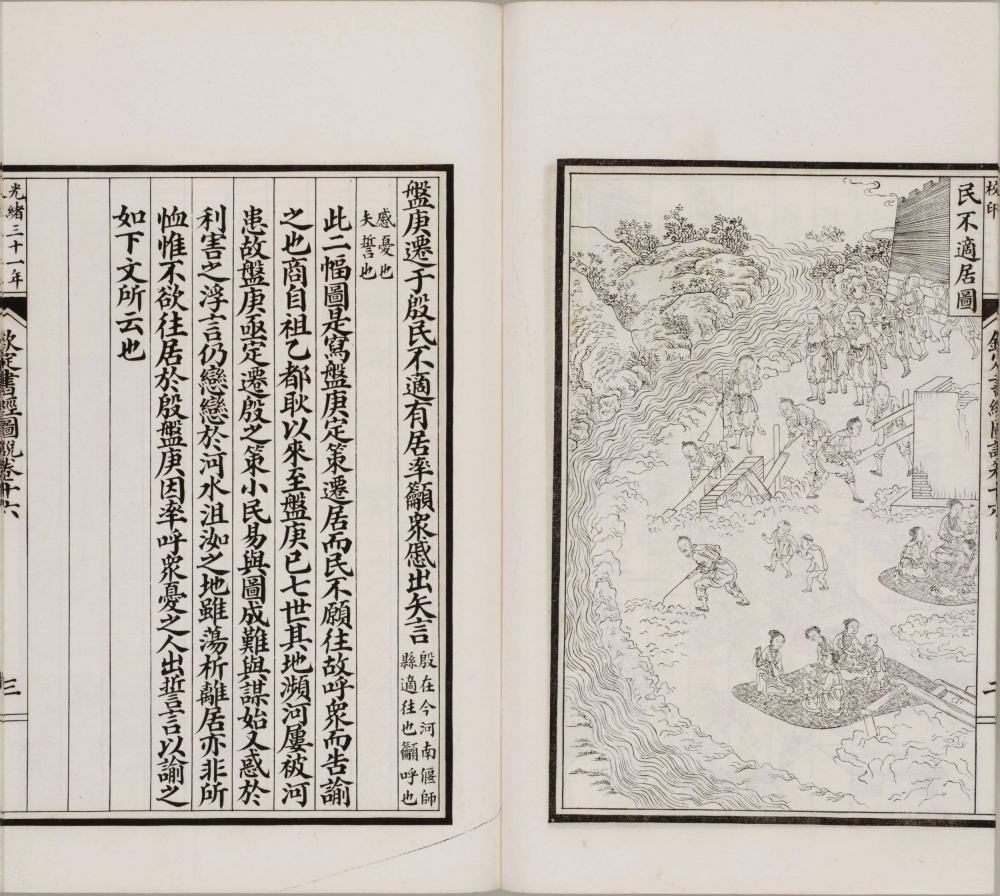 民不適居圖
盤庚遷于殷民不適有居率籲衆慼出矢言
殷在今河南偃師
縣適往也籲呼也
慼憂也
矢誓也
此二幅圖是寫盤庚定策遷居而民不願往故呼衆而告諭
之也商自祖乙都耿以來至盤庚已七世其地瀕河屢被河
患故盤庚亟定遷殷之策小民易與圖成難與謀始又惑於
利害之浮言仍戀戀於河水沮洳之地雖蕩析離居亦非所
恤惟不欲往居於殷盤庚因率呼衆憂之人出誓言以諭之
如下文所云也
光緒三十一年
欽定書經圖說卷十六
三